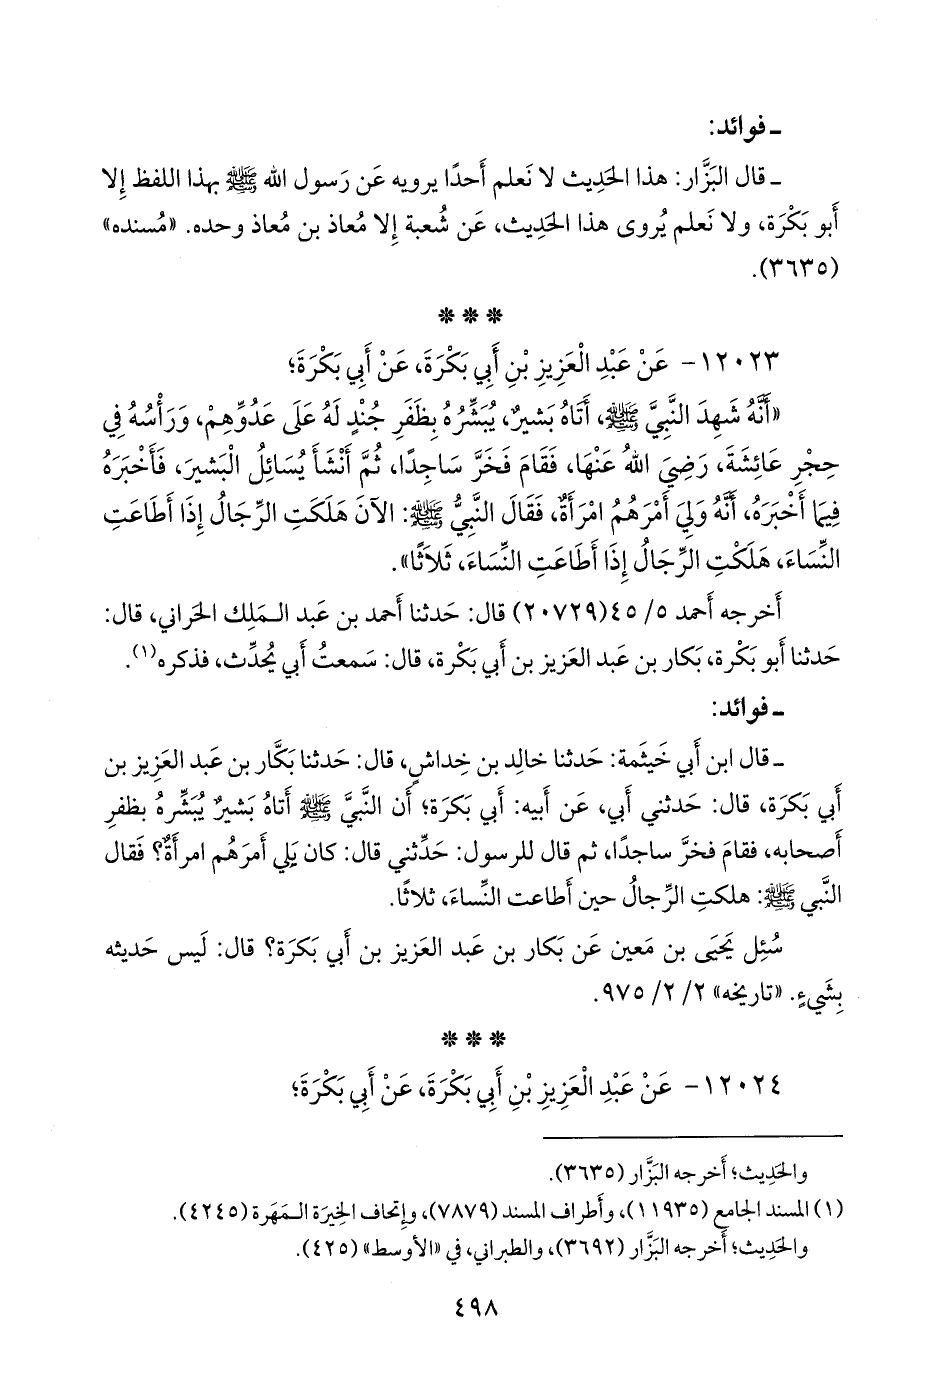 ـ فوائد:
ـ قال البَزَّار: هذا الحَدِيث لا نَعلم أَحدًا يرويه عَن رَسول الله ﷺ بهذا اللفظ إِلا
أَبو بَكْرَة، ولا نَعلم يُروى هذا الحَدِيث، عَن شُعبة إِلا مُعاذ بن مُعاذ وحده. «مُسنده»
(٣٦٣٥).
* * *
١٢٠٢٣- عَنْ عَبْدِ الْعَزِيزِ بْنِ أَبِي بَكْرَةَ، عَنْ أَبِي بَكْرَةَ؛
«أَنَّهُ شَهِدَ النَّبِيَّ ﷺ، أَتَاهُ بَشِيرٌ، يُبَشِّرُهُ بِظَفَرِ جُنْدٍ لَهُ عَلَى عَدُوِّهِمْ، وَرَأْسُهُ فِي
حِجْرِ عَائِشَةَ، رَضِيَ اللهُ عَنْهَا، فَقَامَ فَخَرَّ سَاجِدًا، ثُمَّ أَنْشَأَ يُسَائِلُ الْبَشِيرَ، فَأَخْبَرَهُ
فِيمَا أَخْبَرَهُ، أَنَّهُ وَلِيَ أَمْرَهُمُ امْرَأَةٌ، فَقَالَ النَّبِيُّ ﷺ: الآنَ هَلَكَتِ الرِّجَالُ إِذَا أَطَاعَتِ
النِّسَاءَ، هَلَكْتِ الرِّجَالُ إِذَا أَطَاعَتِ النِّسَاءَ، ثَلاَثًا».
أَخرجه أَحمد ٥/ ٤٥(٢٠٧٢٩) قال: حَدثنا أَحمد بن عَبد الـمَلِك الحَراني، قال:
حَدثنا أَبو بَكْرة، بَكار بن عَبد العَزيز بن أَبي بَكْرة، قال: سَمعتُ أَبي يُحدِّث، فذكره(١).
ـ فوائد:
ـ قال ابن أَبي خَيثمة: حَدثنا خالِد بن خِداشٍ، قال: حَدثنا بَكَّار بن عَبد العَزيز بن
أَبي بَكرَة، قال: حَدثني أَبي، عَن أَبيه: أَبي بَكرَة؛ أَن النَّبيَّ ﷺ أَتاهُ بَشيرٌ يُبَشِّره بظفرِ
أَصحابه، فقامَ فخرَّ ساجدًا، ثم قال للرسول: حَدِّثني قال: كان يَلي أَمرَهُم امرأَةٌ؟ فقال
النَّبي ﷺ: هلكتِ الرِّجالُ حين أَطاعت النِّساءَ، ثلاثًا.
سُئِل يَحيَى بن مَعين عَن بَكار بن عَبد العَزيز بن أَبي بَكرَة؟ قال: لَيس حَديثه
بِشَيءٍ. «تاريخه» ٢/ ٢/ ٩٧٥.
* * *
١٢٠٢٤- عَنْ عَبْدِ الْعَزِيزِ بْنِ أَبِي بَكْرَةَ، عَنْ أَبِي بَكْرَةَ؛
والحَدِيث؛ أَخرجه البَزَّار (٣٦٣٥).
(١) المسند الجامع (١١٩٣٥)، وأَطراف المسند (٧٨٧٩)، وإِتحاف الخِيرَة الـمَهَرة (٤٢٤٥).
والحَدِيث؛ أَخرجه البَزَّار (٣٦٩٢)، والطبراني، في «الأوسط» (٤٢٥).
٤٩٨